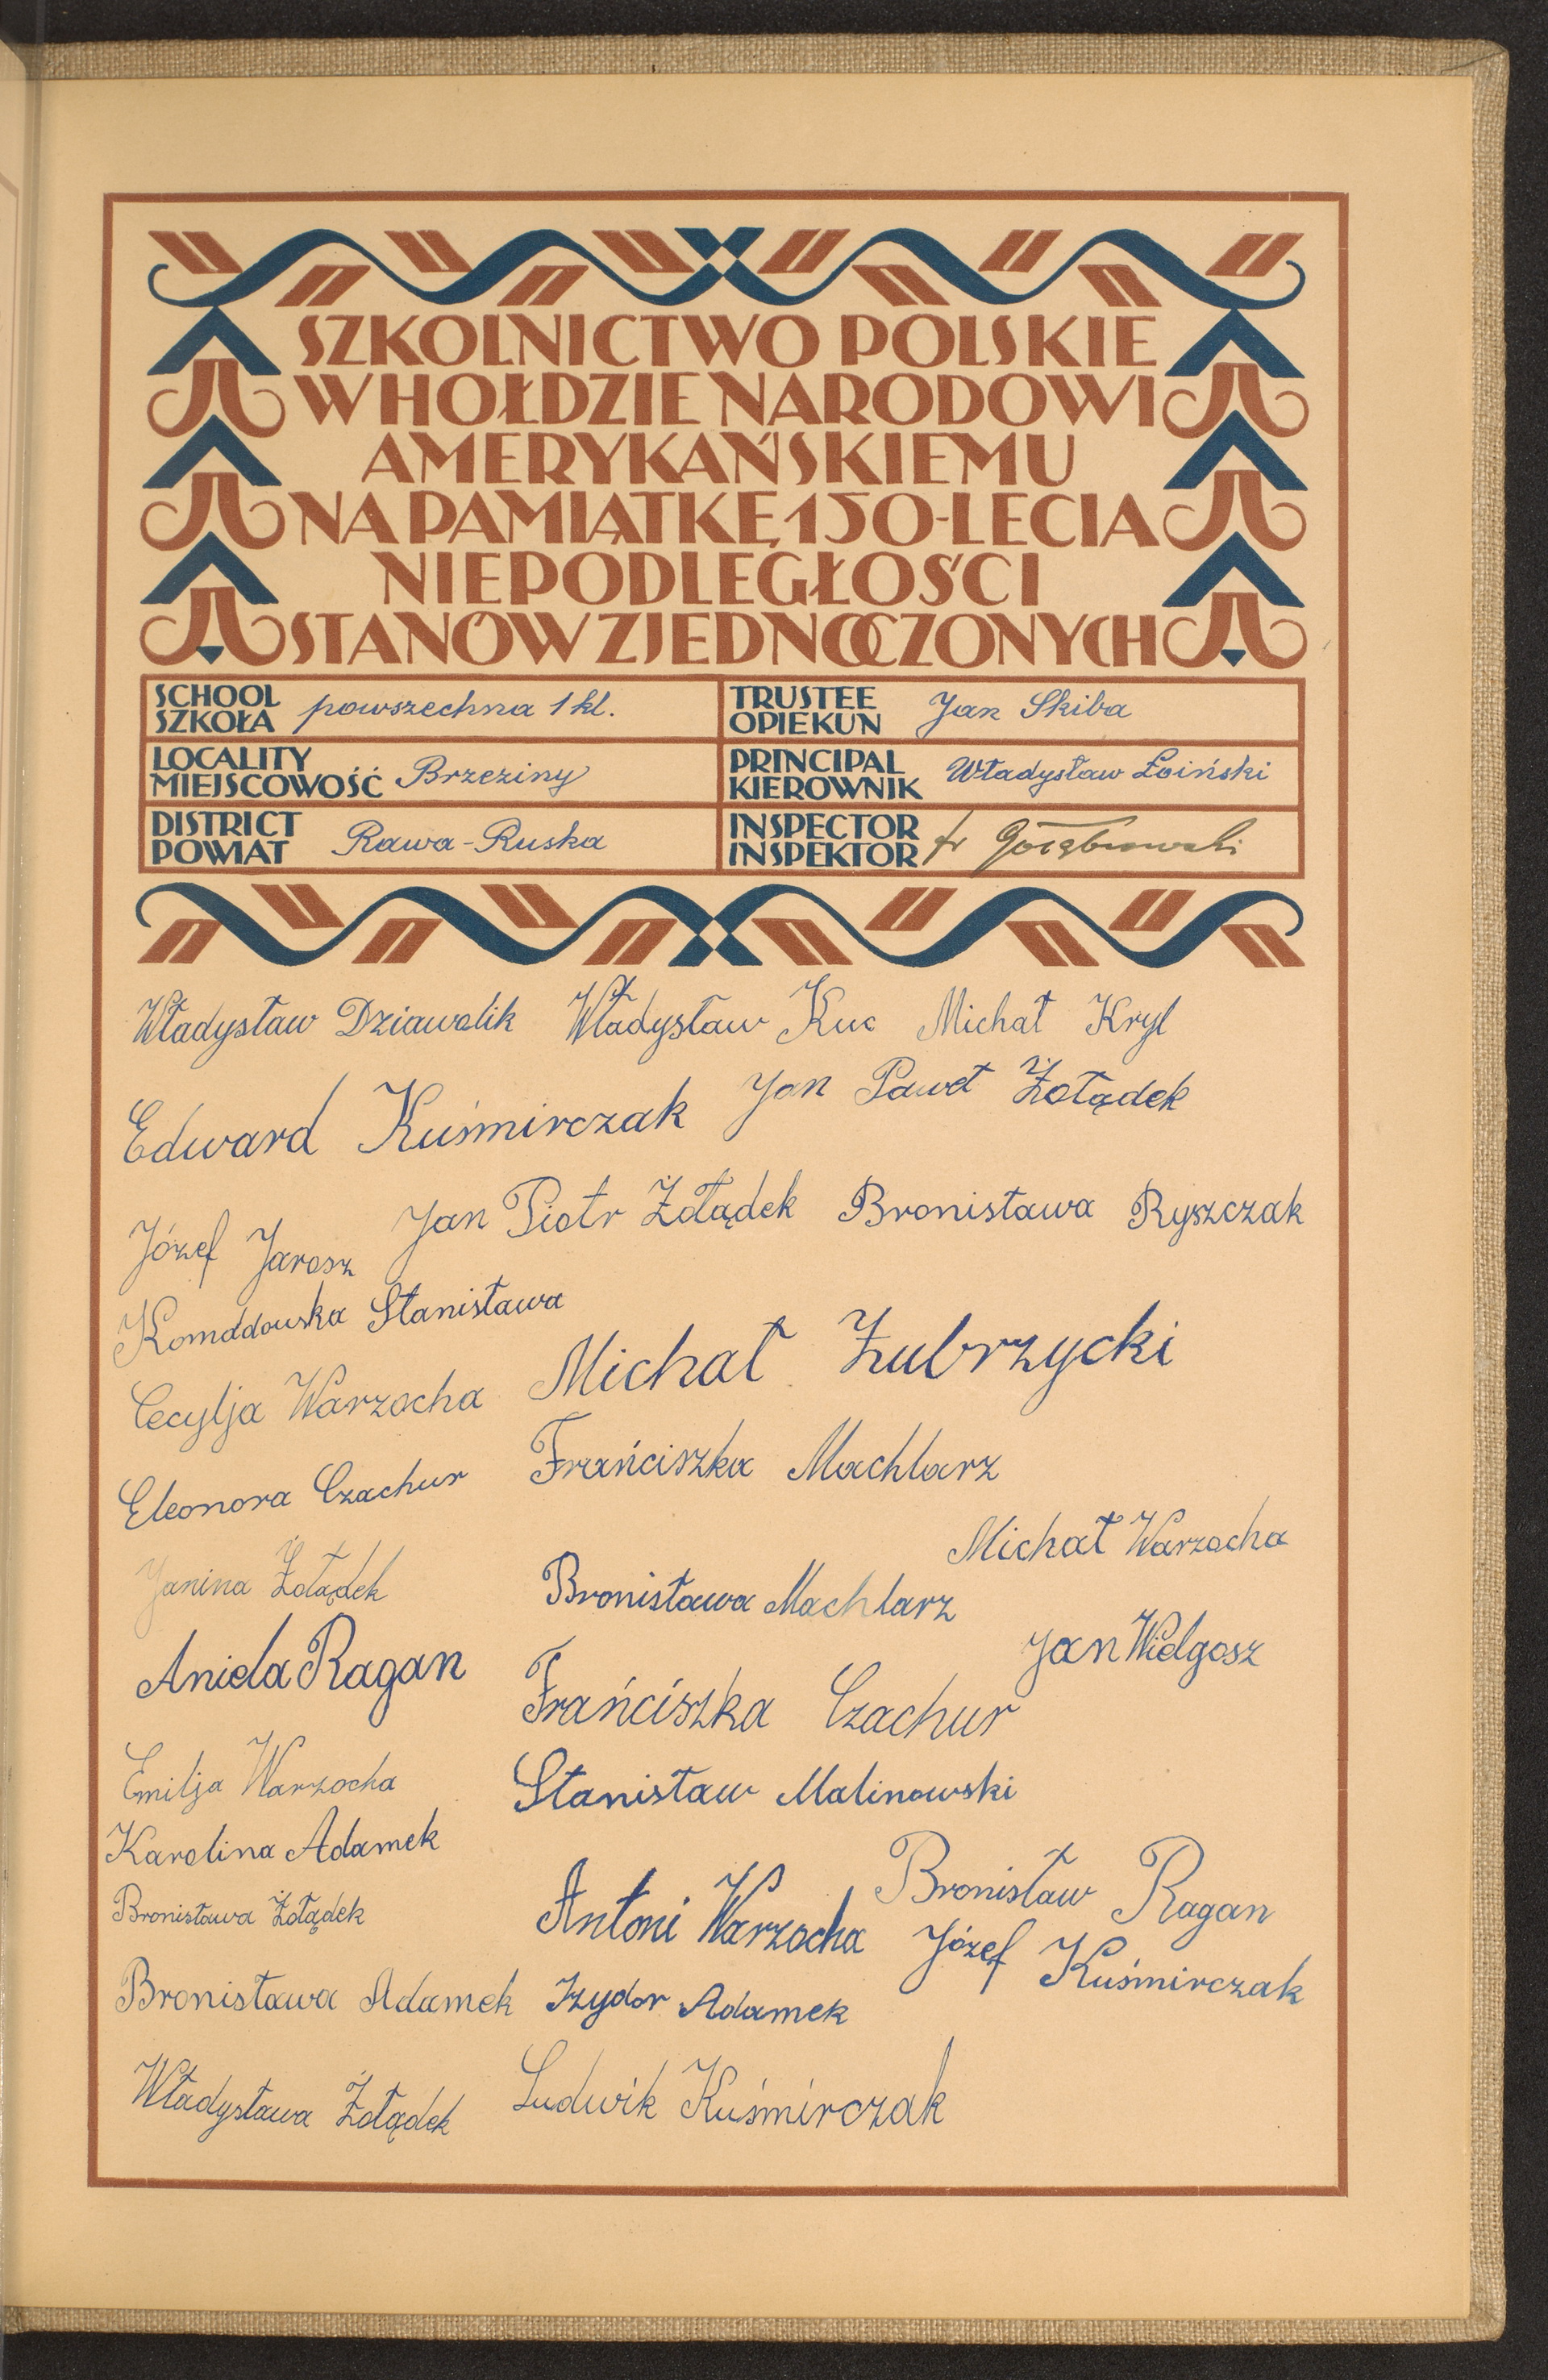 SZKOLNICTWO POLSKIE
W HOŁDZIE NARODOWI
AMERYKAŃSKIEMU
NA PAMIĄTKĘ 150-LECIA
NIEPODLEGŁOŚCI
STANÓW ZJEDNOCZONYCH
SCHOOL
SZKOŁA powszechna 1 kl.
TRUSTEE
OPIEKUN Jan Skiba
LOCALITY
MIEJSCOWOŚĆ Brzeziny
PRINCIPAL
KIEROWNIK Władysław Łoiński
DISTRICT
POWIAT Rawa-Ruska
INSPECTOR
INSPEKTOR Gołąbrowski
Władysław Dziawolik Władysław Kuc Michał Kryl
Edward Kuśmirczak Jan Paweł Żołądek
Józef Jarosz Jan Piotr Żołądek Bronisława Ryszczak
Stanisława
Cecylja Warzocha Michał Zubrzycki
Eleonora Czachur Frańciszka Machlarz
Michał Warzocha
Janina Żołądek Bronisława Machlarz
Jan Wielgosz
Aniela Ragan Frańciszka Czachur
Emilja Warzocha Stanisław Malinowski
Karolina Adamek
Bronisława Żołądek Antoni Warzocha Bronisław Ragan
Józef Kuśmirczak
Bronisława Adamek Izydor Adamek
Władysława Żołądek Ludwik Kuśmirczak